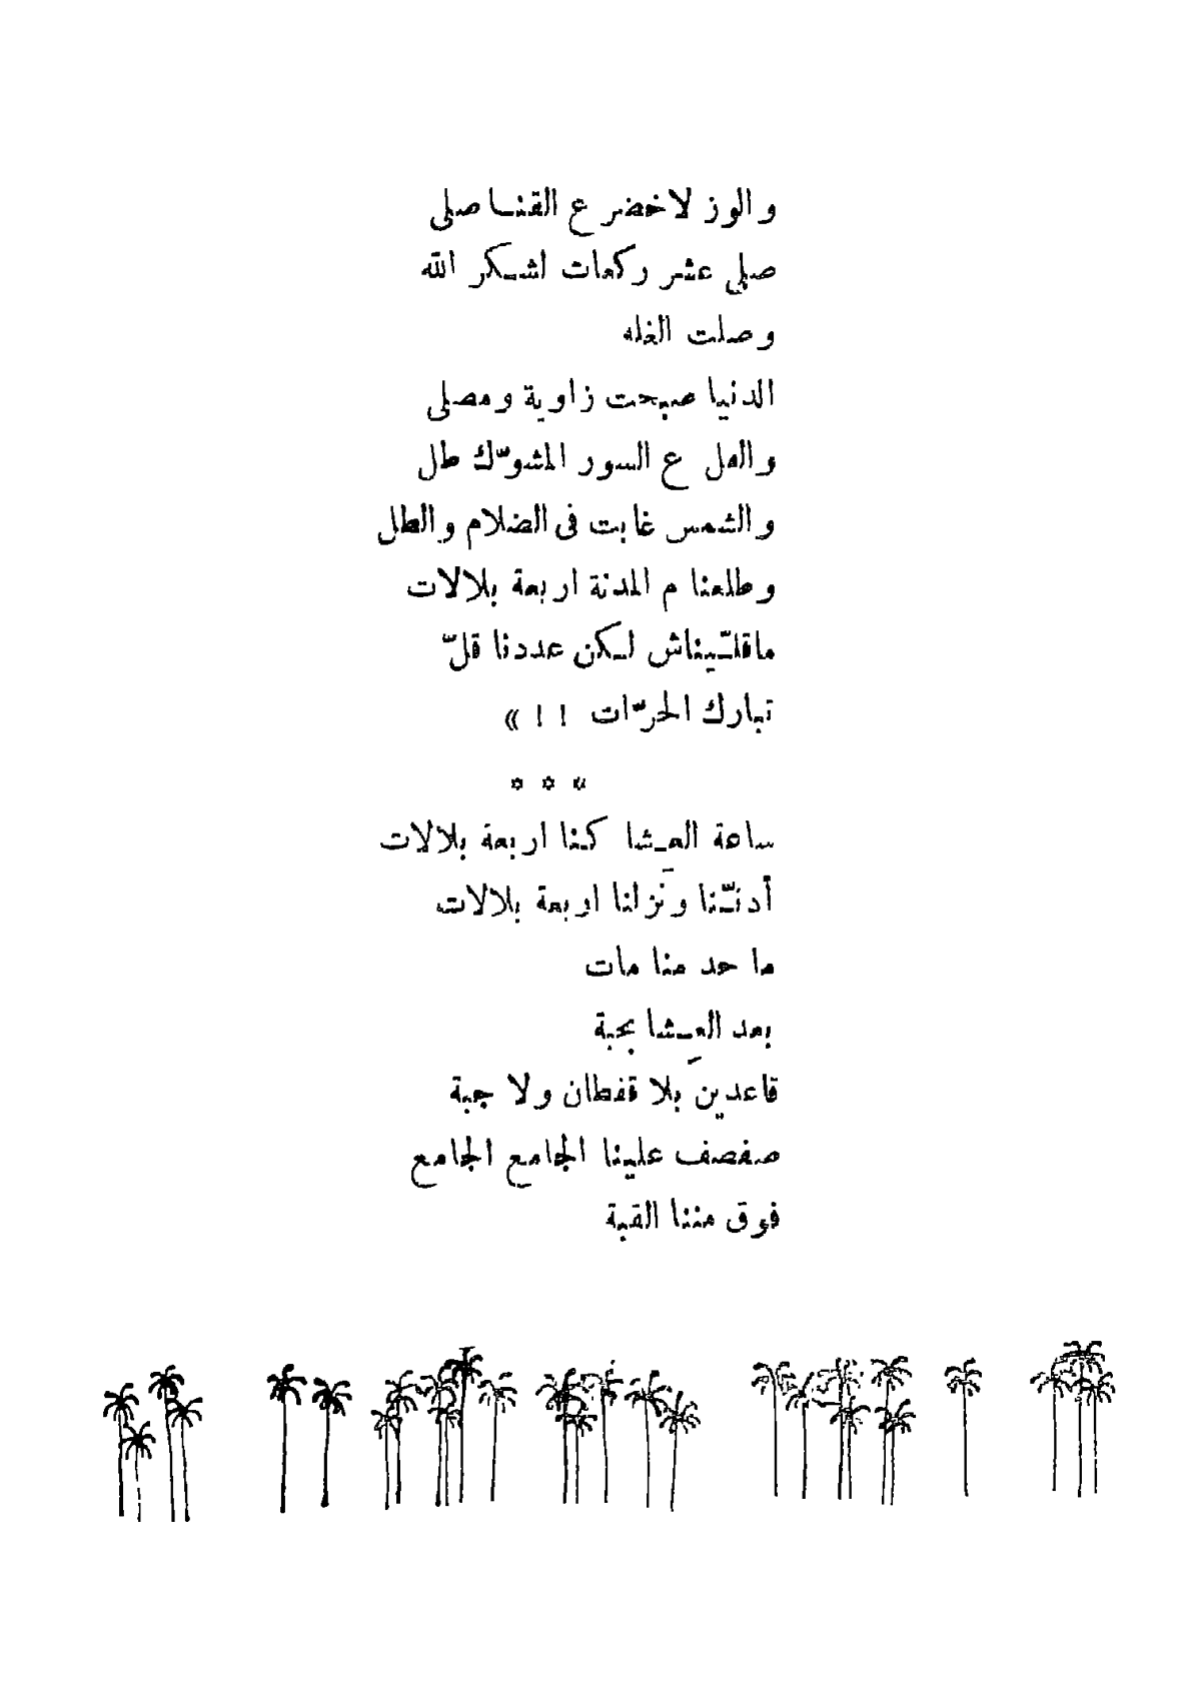 والوز لاخضر ع القنا صلى
صلى عشر ركعات لشكر الله
وصلت الغله
الدنيا صبحت زاوية ومصلى
والفل ع السور المشوّك طل
والشمس غابت فى الضلام والطل
وطلعنا م المدنة اربعة بلالات
ماقلّيناش لكن عددنا قلّ
تبارك الحرّات ! ! »
* * *
ساعة العشا كنا اربعة بلالات
أدنّنا ونَزلنا اربعة بلالات
ما حد منا مات
بعد العشا بحبة
قاعدينَ بلا قفطان ولا جبة
صفصف علينا الجامع الجامع
فوق مننا القبة